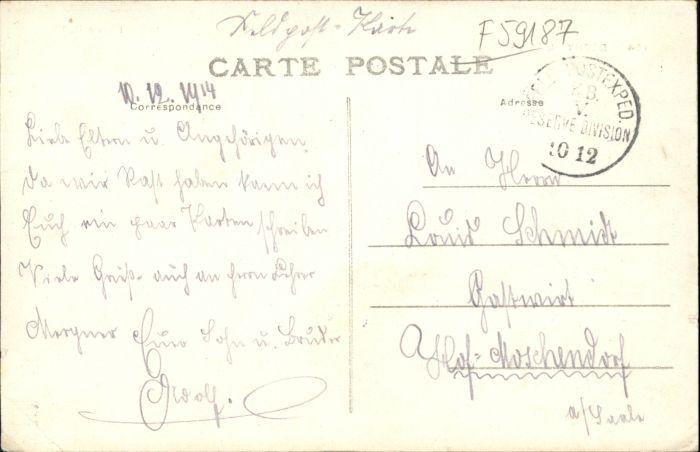 Feldpost-Karte
F59187
CARTE POSTALE
10.12.1914
Correspondance
Adresse
POSTEXPED.
K.B.
V.
RESERVE DIVISION
10 12
Liebe Eltern u. Angehörigen.
Da wir Rast haben kann ich
Euch ein paar Karten schreiben
Viele Grüße auch an Herrn Lehrer
Mergner Euer Sohn u. Bruder
Adolf.
An Herrn
Louis Schmidt
Gastwirt
Hof-Moschendorf
a/Saale